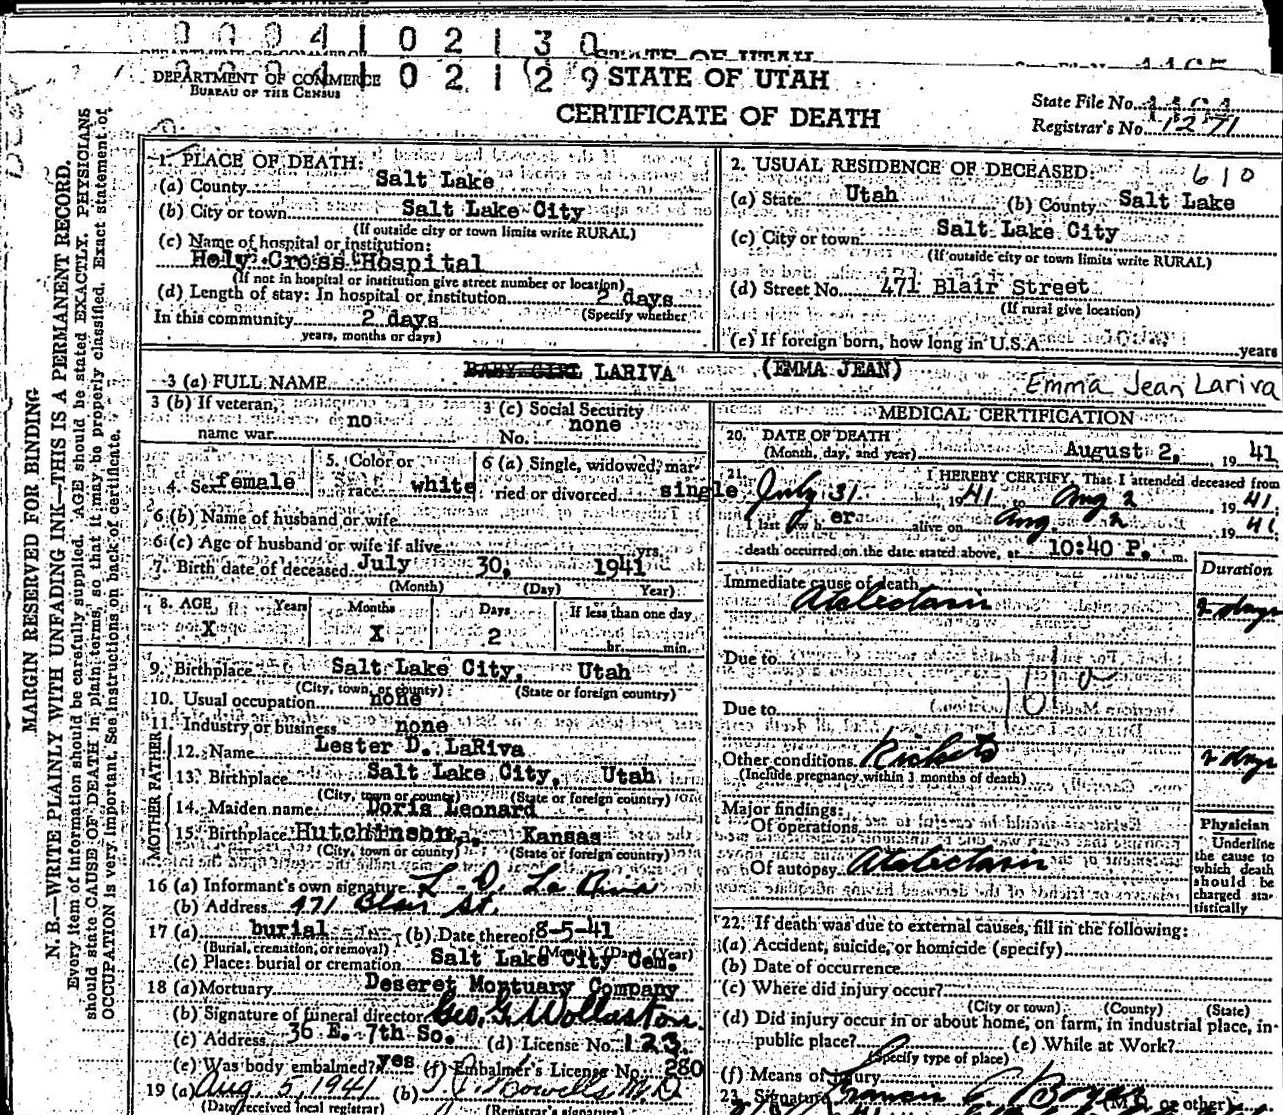 0 0 0 4 1 0 2 1 3 0
STATE OF UTAH
DEPARTMENT OF COMMERCE
BUREAU OF THE CENSUS
0 2 1 2 9
STATE OF UTAH
CERTIFICATE OF DEATH
State File No.
Registrar's No. 1271
MARGIN RESERVED FOR BINDING
N. B.—WRITE PLAINLY WITH UNFADING INK—THIS IS A PERMANENT RECORD.
Every item of information should be carefully supplied. AGE should be stated EXACTLY. PHYSICIANS
should state CAUSE OF DEATH in plain terms, so that it may be properly classified. Exact statement of
OCCUPATION is very important. See instructions on back of certificate.
1. PLACE OF DEATH:
(a) County Salt Lake
(b) City or town Salt Lake City
(If outside city or town limits write RURAL)
(c) Name of hospital or institution:
Holy Cross Hospital
(If not in hospital or institution give street number or location)
(d) Length of stay: In hospital or institution 2 days
(Specify whether
In this community 2 days
years, months or days)
2. USUAL RESIDENCE OF DECEASED:
610
(a) State Utah (b) County Salt Lake
(c) City or town Salt Lake City
(If outside city or town limits write RURAL)
(d) Street No. 471 Blair Street
(If rural give location)
(e) If foreign born, how long in U.S.A. years
3 (a) FULL NAME BABY GIRL LARIVA (EMMA JEAN) Emma Jean Lariva
3 (b) If veteran, name war no
3 (c) Social Security No. none
4. Sex female
5. Color or race white
6 (a) Single, widowed, married or divorced single
6 (b) Name of husband or wife
6 (c) Age of husband or wife if alive yrs.
7. Birth date of deceased July 30, 1941
(Month) (Day) Year)
8. AGE Years Months Days If less than one day
X X 2 hr. min.
9. Birthplace Salt Lake City, Utah
(City, town, or county) (State or foreign country)
10. Usual occupation none
11. Industry or business none
FATHER
12. Name Lester D. LaRiva
13. Birthplace Salt Lake City, Utah
(City, town or county) (State or foreign country)
MOTHER
14. Maiden name Doris Leonard
15. Birthplace Hutchinson, Kansas
(City, town or county) (State or foreign country)
16 (a) Informant's own signature L. D. La Riva
(b) Address 471 Blair St.
17 (a) burial (b) Date thereof 8-5-41
(Burial, cremation, or removal) (Month) (Day) (Year)
(c) Place: burial or cremation Salt Lake City Cem.
18 (a) Mortuary Deseret Mortuary Company
(b) Signature of funeral director Geo. G. Wollaston
(c) Address 36 E. 7th So. (d) License No. 123
(e) Was body embalmed? yes (f) Embalmer's License No. 280
19 (a) Aug. 5, 1941 (b) M.D
(Date received local registrar) (Registrar's signature)
MEDICAL CERTIFICATION
20. DATE OF DEATH
(Month, day, and year) August 2, 19 41
21. I HEREBY CERTIFY, That I attended deceased from
July 31, 1941 to Aug 2, 19 41;
I last saw h er alive on Aug 2 19 41;
death occurred on the date stated above, at 10:40 P. m.
Duration
Immediate cause of death
Atelectasis 2 days
Due to
Due to
Other conditions 2 days
(Include pregnancy within 3 months of death)
Major findings:
Of operations
Of autopsy Atelectasis
Physician
Underline
the cause to
which death
should be
charged sta-
tistically
22. If death was due to external causes, fill in the following:
(a) Accident, suicide, or homicide (specify)
(b) Date of occurrence
(c) Where did injury occur?
(City or town) (County) (State)
(d) Did injury occur in or about home, on farm, in industrial place, in
public place? (e) While at Work?
(Specify type of place)
(f) Means of Injury
23. Signature Francis (M.D. or other)